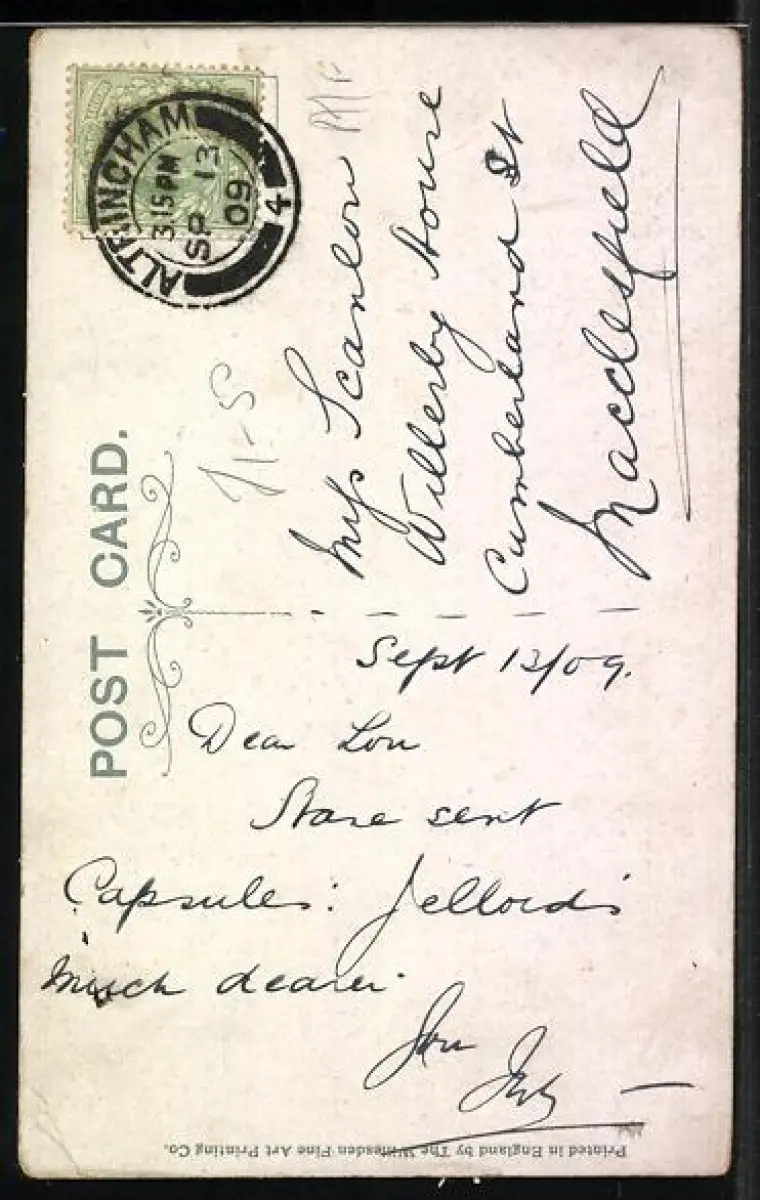 POST CARD.
ALTRINCHAM
3.15 PM
SP 13
09
4
Miss Scanlon
Willerby House
Cumberland St
Macclesfield
Sept 13/09.
Dear Lou
Have sent
Capsules:
much dearer.
Printed in England by The Willesden Fine Art Printing Co.